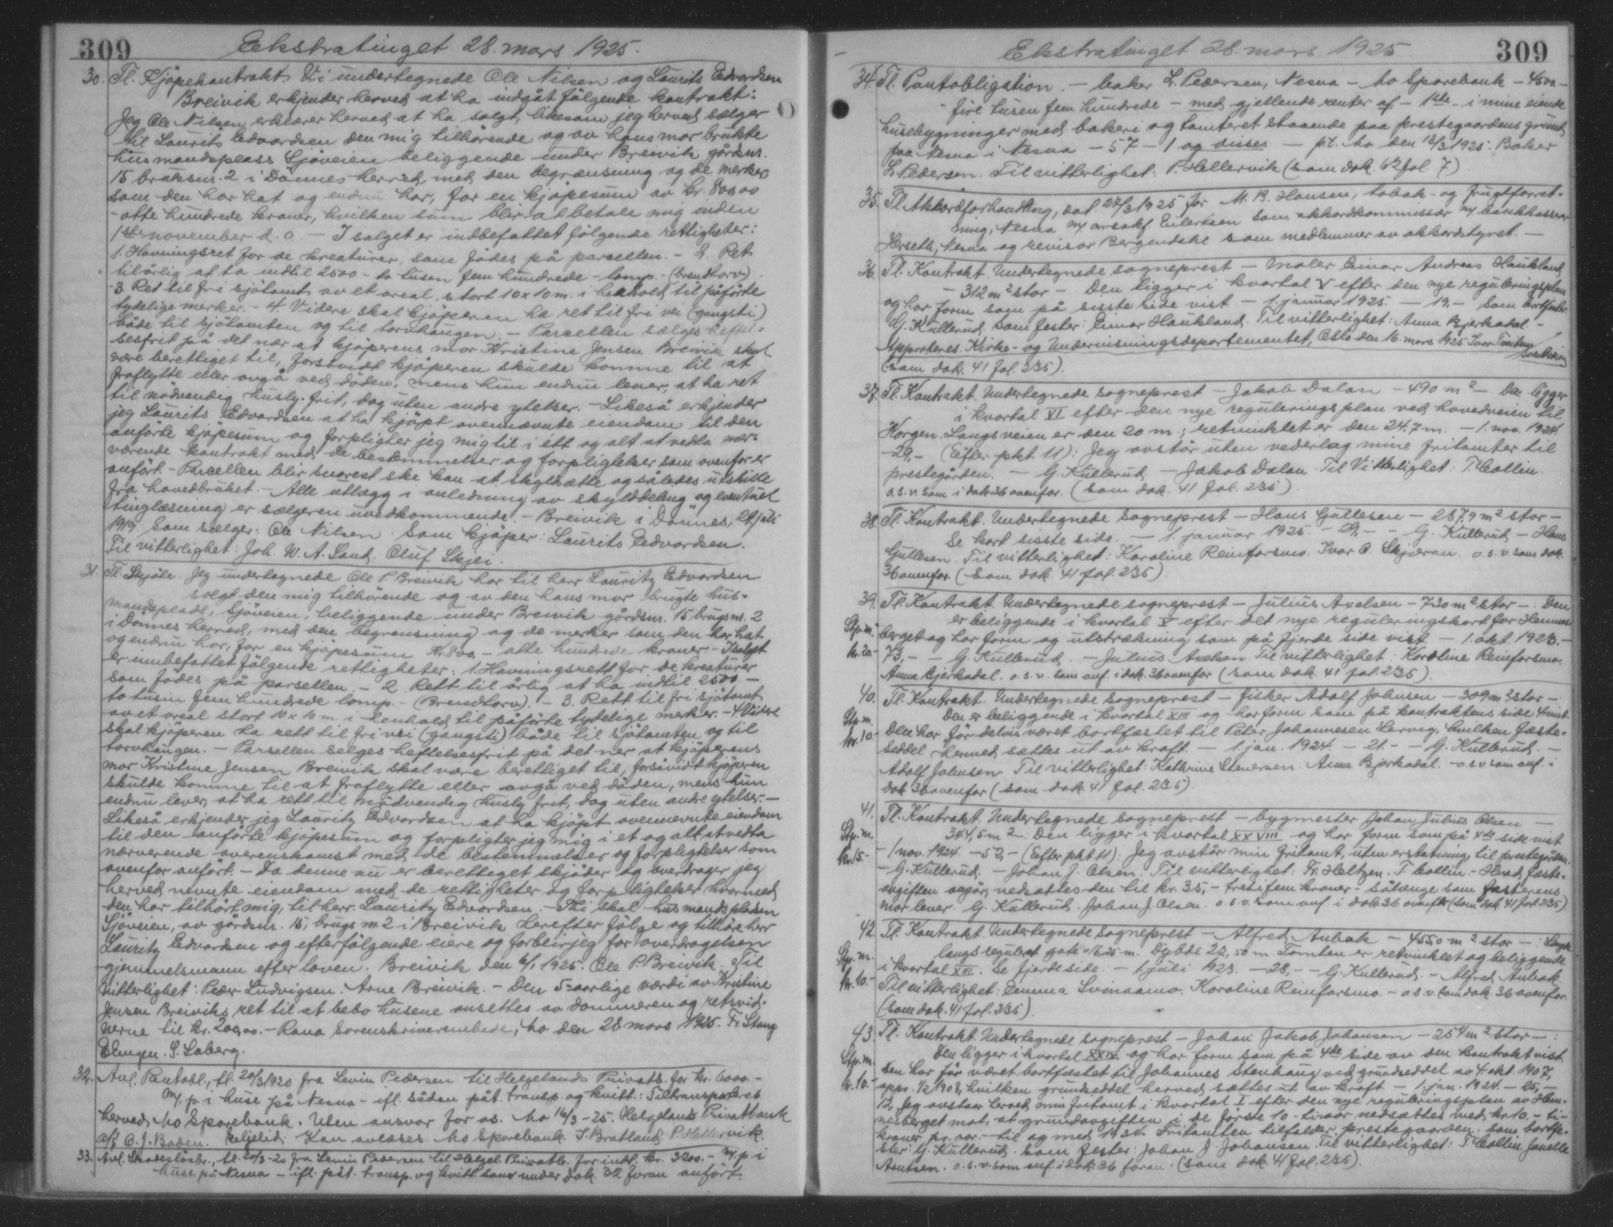 309 Ekstratinget 28. mars 1925.
30. Tl. Kjøpekontrakt. Vi undertegnede Ole Nilsen og Laurits Edvardsen
Breivik erkjender herved at ha indgåt følgende kontrakt:
Jeg Ole Nilsen erklærer herved at ha solgt, likesom jeg herved sælger
til Laurits Edvardsen den mig tilhørende og av hans mor brukte
husmandsplass Sjøveien beliggende under Breivik gårdsnr.
15 bruksnr. 2 i Dønnes herred, med den begrænsning og de merker
som den har hat og endnu har, for en kjøpesum av kr. 800.00
- otte hundrede kroner, hvilken sum blir at betale mig inden
1ste november d. a. - I salget er indbefattet følgende rettigheter:
1. Havningsret for de kreaturer, som fødes på parcellen. - 2. Ret
til årlig at ta indtil 2500 - to tusen fem hundrede - lomp. - (brendtorv)
- 3. Ret til fri sjøtomt av et areal, stort 10 x 10 m. i henhold til påførte
tydelige merker. - 4. Videre skal kjøperen ha ret til fri vei (gangsti)
både til sjøtomten og til torvhaugen. - Parcellen sælges heftel-
sesfrit på det nær at kjøperens mor Kristine Jensen Breivik skal
være berettiget til, forsåvidt kjøperen skulde komme til at
fraflytte eller avgå ved døden, mens hun endnu lever, at ha ret
til nødvendig husly frit, dog uten andre ytelser. - Likeså erkjender
jeg Laurits Edvardsen at ha kjøpt ovennævnte eiendom til den
anførte kjøpesum og forpligter jeg mig til i ett og alt at vedta nær-
værende kontrakt med de bestemmelser og forpligtelser som ovenfor er
anført. - Parcellen blir snarest ske kan at skyldsætte og således utskille
fra hovedbruket. - Alle utlægg i anledning av skylddeling og eventuel
tinglæsning er sælgeren uvedkommende. - Breivik i Dønnes, 29 juli
1919. Som sælger: Ole Nilsen. Som kjøper: Laurits Edvardsen.
Til vitterlighet: Joh. W. A. Sand. Oluf Skjei.
31. Tl. Skjøte. Jeg undertegnede Ole P. Breivik har til herr Lauritz Edvardsen
solgt den mig tilhørende og av den hans mor brugte hus-
mandsplads, Sjøveien, beliggende under Breivik gårdsnr. 15 brugsnr. 2
i Dønnes herred, med den begrensning og de merker som den har hat
og endnu har, for en kjøpesum Kr. 800 - otte hundrede kroner. - I salget
er innbefattet følgende rettigheter: 1. Havningsrett for de kreaturer
som fødes på parsellen. - 2. Rett til årlig at ta indtil 2500 -
to tusin fem hundrede lomp. - (Brendtorv). - 3. Rett til fri sjøtomt
av et areal stort 10 x 10 m. i henhold til påførte tydelige merker. - 4. Videre
skal kjøperen ha rett til fri vei (gangsti) både til sjøtomten og til
torvhaugen. - Parsellen selges heftelsesfrit på det nær at kjøperens
mor Kristine Jensen Breivik skal være berettiget til, forsåvidt kjøperen
skulde komme til at fraflytte eller avgå ved døden, mens hun
endnu lever, at ha rett til nødvendig husly frit, dog uten andre ytelser. -
Likeså erkjender jeg Lauritz Edvardsen at ha kjøpt ovennevnte eiendom
til den anførte kjøpesum og forpligter jeg mig i et og alt at vedta
nærverende overenskomst med de bestemmelser og forpligtelser som
ovenfor anført. - Da denne nu er berettiget skjøder og overdrager jeg
herved nevnte eiendom med de rettigheter og forpligtelser hvormed
den har tilhørt mig, til herr Lauritz Edvardsen. Thi skal husmandspladsen
Sjøveien, av gårdsnr. 15, brugsnr. 2 i Breivik herefter følge og tilhøre herr
Lauritz Edvardsen og efterfølgende eiere og forblir jeg for overdragelsen
hjemmelsmann efter loven. Breivik den 6/1 1925. Ole P. Breivik. Til
vitterlighet: Peder Ludvigsen. Arne Breivik. - Den 5-aarlige værdi av Kristine
Jensen Breiviks ret til at bebo husene ansettes av dommeren og retsvid-
nerne til kr. 200,00. - Rana Sorenskriverembede, Mo den 28 mars 1925. Fr. Stang
Elmgren. S. Laberg.
32. Avl. Pantobl., tl. 20/3 1920 fra Levin Pedersen til Helgelands Privatb. for kr. 6000. -
m. p. i huse på Nesna - ifl. sådan påt. transp. og kvitt.: Tiltransporteres
herved Mo Sparebank. Uten ansvar for os. Mo 14/3 - 25. Helgelands Privatbank
a/s O. J. Baden. Kan avlæses. Mo Sparebank. T. Bratland. P. Hellervik.
33. Avl. Skadesløsbr., tl. 20/3 - 20 fra Levin Pedersen til Helgel. Privatb. for indt. kr. 3200. - m. p. i
huse på Nesna - ifl. påt. transp. og kvitt. som under dok. 32 foran anført.
Ekstratinget 28. mars 1925 309
34. Tl. Pantobligation. - baker L. Pedersen, Nesna - Mo Sparebank - 4500 -
- fire tusen fem hundrede - med gjellende renter af - 1ste - i mine eiende
husebygninger med bakeri og tomteret staaende paa prestegaardens grund
paa Nesna i Nesna - 57 - 1 og disses - p.t. Mo den 12/3 1925. Baker
L. Pedersen. Til vitterlighet: P. Hellervik (som dok. 62 fol. 7)
35. Tl. Akkordforhandling, dat. 27/3 1925 for M. B. Hansen, tobak- og frugtforret-
ning, Nesna m. overrsakf. Eilertsen som akkordkommissær og bankkasserer
Herseth, Nesna og revisor Bergendahl som medlemmer av akkordstyret. -
36. Tl. Kontrakt. Undertegnede sogneprest - Maler Einar Andreas Haukland
- 312 m² stor - Den ligger i kvartal V efter den nye reguleringsplan
og har form som på sisste side vist - 1. januar 1925 - 19, - Som bortfester
G. Kullerud. Som fester: Einar Haukland. Til vitterlighet: Anna Bjerkadal -
Approberes. Kirke- og Undervisningsdepartementet, Oslo den 16. mars 1925. Ivar
(som dok. 41 fol. 235).
37. Tl. Kontrakt. Undertegnede sogneprest - Jakob Dalan - 490 m² - Den ligger
i kvartal VI efter den nye reguleringsplan ved hovedveien til
Horgen. Langs veien er den 20 m., retvinklet er den 24,7 m. - 1. nov. 1924
- 29, - (Efter pkt. 11): Jeg avstår uten vederlag mine fritomter til
prestegården. - G. Kullerud - Jakob Dalan. Til Vitterlighet: T. Collin.
o.s.v. som i dok. 36 ovenfor. (som dok. 41 fol. 235).
38. Tl. Kontrakt. Undertegnede sogneprest - Hans Gullesen - 287,9 m² stor -
Se kart sisste side. - 1. januar 1925 - - G. Kullerud - Hans
Gullesen. Til vitterlighet: Karoline Reinforsmo. Ivar O. Skjæran. o.s.v. som dok.
36 ovenfor. (som dok. 41 fol. 235).
39. Tl. Kontrakt. Undertegnede sogneprest - Julius Axelsen - 730 m² stor - : Den
er beliggende i kvartal V efter det nye reguleringskart for Hammer-
Stp. m. berget og har form og utstrækning som på fjerde side vist - 1. okt. 1923. -
kr. 20 - 73, - - G. Kullerud. - Julius Axelsen. Til vitterlighet: Karoline Reinforsmo.
Anna Bjerkadal. o.s.v. som anf. i dok. 36 ovenfor (som dok. 41 fol. 235).
40. Tl. Kontrakt. Undertegnede Sogneprest - fisker Adolf Johnsen - 309 m² stor -
Stp. m. Den er beliggende i kvartal XIII og har form som på kontraktens side 4 vist.
kr. 10 - Den har før delvis været bortfæstet til Peter Johannesen Hervig, hvilken fæste-
seddel hermed settes ut av kraft. - 1. jan. 1924 - 21. - - G. Kullerud. -
Adolf Johnsen. Til vitterlighet: Kathrine Stenersen. Anna Bjerkadal. - o.s.v. som anf. i
dok. 36 ovenfor (som dok. 41 fol. 235).
41. Tl. Kontrakt. Undertegnede sogneprest - bygmester Johan Julius Olsen -
Stp. m. 344,5 m². Den ligger i kvartal XXVIII og har form som på 4de side vist
kr. 15. - - 1 nov. 1924. - 52, - (Efter pkt. 11) Jeg avstår min fritomt, uten erstatning, til prestegården.
- G. Kullerud. - Johan J. Olsen. Til vitterlighet: Fr. Heltzen. T. Collin. - Hvad fæste-
avgiften angår, nedsættes den til kr. 35, - tretifem kroner - sålænge som festerens
mor lever. G. Kullerud. Johan J. Olsen. o.s.v. som anf. i dok. 36 ovenfor (som dok. 41 fol. 235)
42. Tl. Kontrakt. Undertegnede sogneprest - Alfred Aubak - 455,0 m² stor - : Lengde
Stp. m. langs regulert gate 16,25 m. Dybde 28,50 m. Tomten er retvinklet og beliggende
kr. 10. - i kvartal XIII. Se fjerde side. - 1. juli 1923. - 28, - - G. Kullerud. - Alfred Aubak.
Til vitterlighet: Emma Svinaamo. Karoline Reinforsmo. - o.s.v. som dok. 36 ovenfor
(som dok. 41 fol. 235).
43. Tl. Kontrakt. Undertegnede sogneprest - Johan Jakob Johansen - 254 m² stor - :
Stp. m. Den ligger i kvartal XXIV og har form som på 4de side av den kontrakt vist.
kr. 10. - Den har før været bortfæstet til Johannes Stenhaug ved grundseddel av 4 okt. 1907,
app. 1/2 1908, hvilken grundseddel herved sættes ut av kraft - 1. jan. 1924. - 25, -
12, Jeg avstår herved min fritomt i kvartal I efter den nye reguleringsplan av Ham-
nesberget mot, at grundavgiften i de første 10 - ti - aar nedsættes med kr. 10. - ti -
kroner pr. aar - til og med 1934. Fritomten tilfalder prestegaarden. Som bortfe-
ster: G. Kullerud. Som fester: Johan J. Johansen. Til vitterlighet: T. Collin. Janette
Arntsen. o.s.v. som anf. i dok. 36 foran. (som dok. 41 fol. 235).